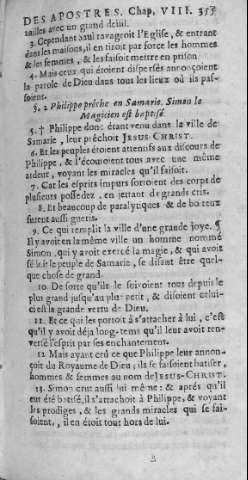 DES APOSTRES. Chap. VIII. 355
railles avec un grand deüil.
3. Cependant Saul ravageoit l'Eglise, & entrant
dans les maisons, il en tiroit par force les hommes
& les femmes, & les faisoit mettre en prison.
4. Mais ceux qui étoient dispersés annonçoient
la parole de Dieu dans tous les lieux où ils pas-
soient.
§. 2 Philippe prêche en Samarie. Simon le
Magicien est baptesé.
5. † Philippe donc étant venu dans la ville de
Samarie, leur prêchoit JESUS-CHRIST.
6. Et les peuples étoient attentifs aux discours de
Philippe, & l'écoutoient tous avec une même
ardeur, voyant les miracles qu'il faisoit.
7. Car les esprits impurs sortoient des corps de
plusieurs possedez, en jettant de grands cris.
8. Et beaucoup de paralytiques & de boiteux
furent aussi gueris.
9. Ce qui remplit la ville d'une grande joye. ¶
Il y avoit en la même ville un homme nommé
Simon, qui y avoit exercé la magie, & qui avoit
séduit le peuple de Samarie, se disant être quel-
que chose de grand.
10. De sorte qu'ils le suivoient tous depuis le
plus grand jusqu'au plus petit, & disoient celui-
ci est la grande vertu de Dieu.
11. Et ce qui les portoit à s'attacher à lui, c'est
qu'il y avoit déja long-tems qu'il leur avoit ren-
versé l'esprit par ses enchantement.
12 Mais ayant crû ce que Philippe leur annon-
çoit du Royaume de Dieu, ils se faisoient batiser,
hommes & femmes au nom de JESUS-CHRIST.
13. Simon crut aussi lui même: & aprés qu'il
eut été batisé, il s'attachoit à Philippe, & voyant
les prodiges, & les grands miracles qui se fai-
soient, il en étoit tout hors de lui.